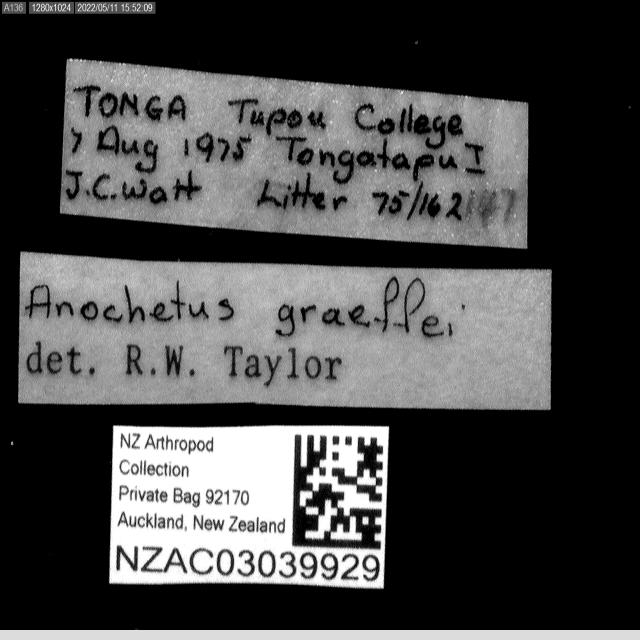 A136 1280x1024 2022/05/11 15:52:09
TONGA Tupou College
7 Aug 1975 Tongatapu I
J.C. Watt Litter 75/162
Anochetus graeffei
det. R.W. Taylor
NZ Arthropod
Collection
Private Bag 92170
Auckland, New Zealand
NZAC03039929